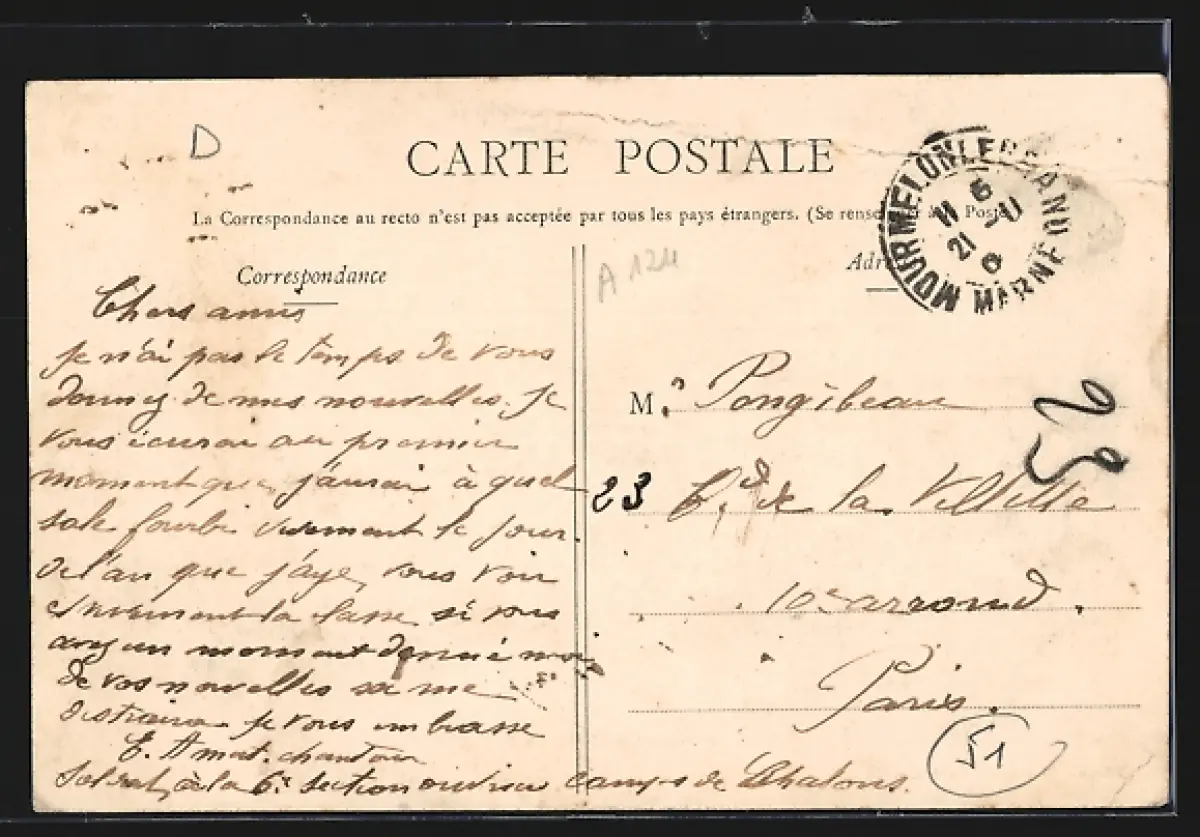 D
CARTE POSTALE
La Correspondance au recto n'est pas acceptée par tous les pays étrangers. (Se rense à la Poste
MOURMELON LE GRAND
MARNE
6
11 -11
21 6
Correspondance
A 124
Adr
Chers amis
Je n'ai pas le temps de vous
donney de mes nouvelles. Je
vous écurai au premier
moment que j'aurai à quel
sale fourbi vivement le jour
de l'an que j'aye vous voir
vivement la classe si vous
avez un moment donné moi
de vos nouvelles sa me
distraira je vous embrasse
E. Amat. chanteur
Soldat à la 6e section ouvrier camp de Chalons.
M. Pongibeau
23 Bd de la Villette
10e arrond.
Paris.
51